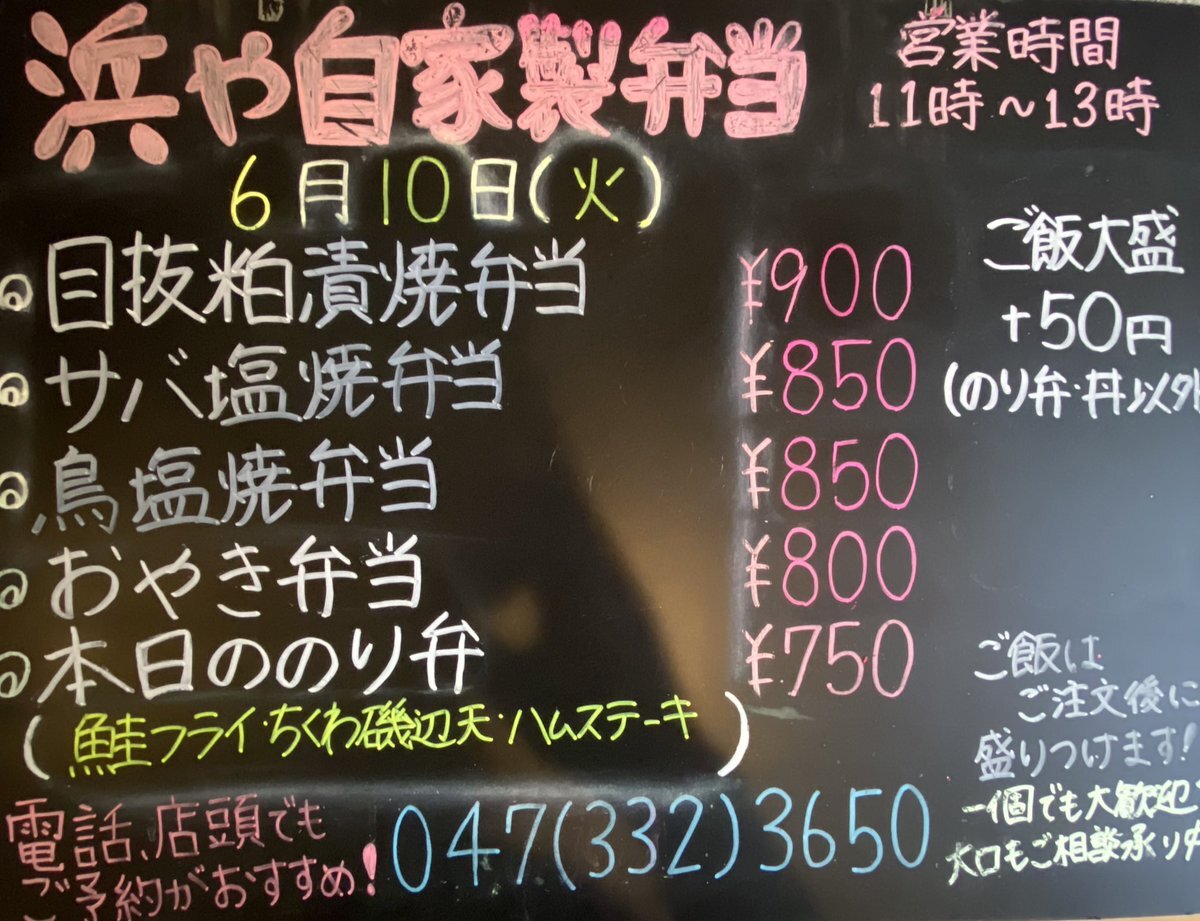 浜や自家製弁当
営業時間
11時～13時
6月10日(火)
目抜粕漬焼弁当 ¥900
サバ塩焼弁当 ¥850
鳥塩焼弁当 ¥850
おやき弁当 ¥800
本日ののり弁 ¥750
(鮭フライ・ちくわ磯辺天・ハムステーキ)
ご飯大盛
+50円
(のり弁・丼以外
ご飯は
ご注文後に
盛りつけます!
一個でも大歓迎
大口もご相談承り
電話、店頭でも
ご予約がおすすめ!
047(332)3650